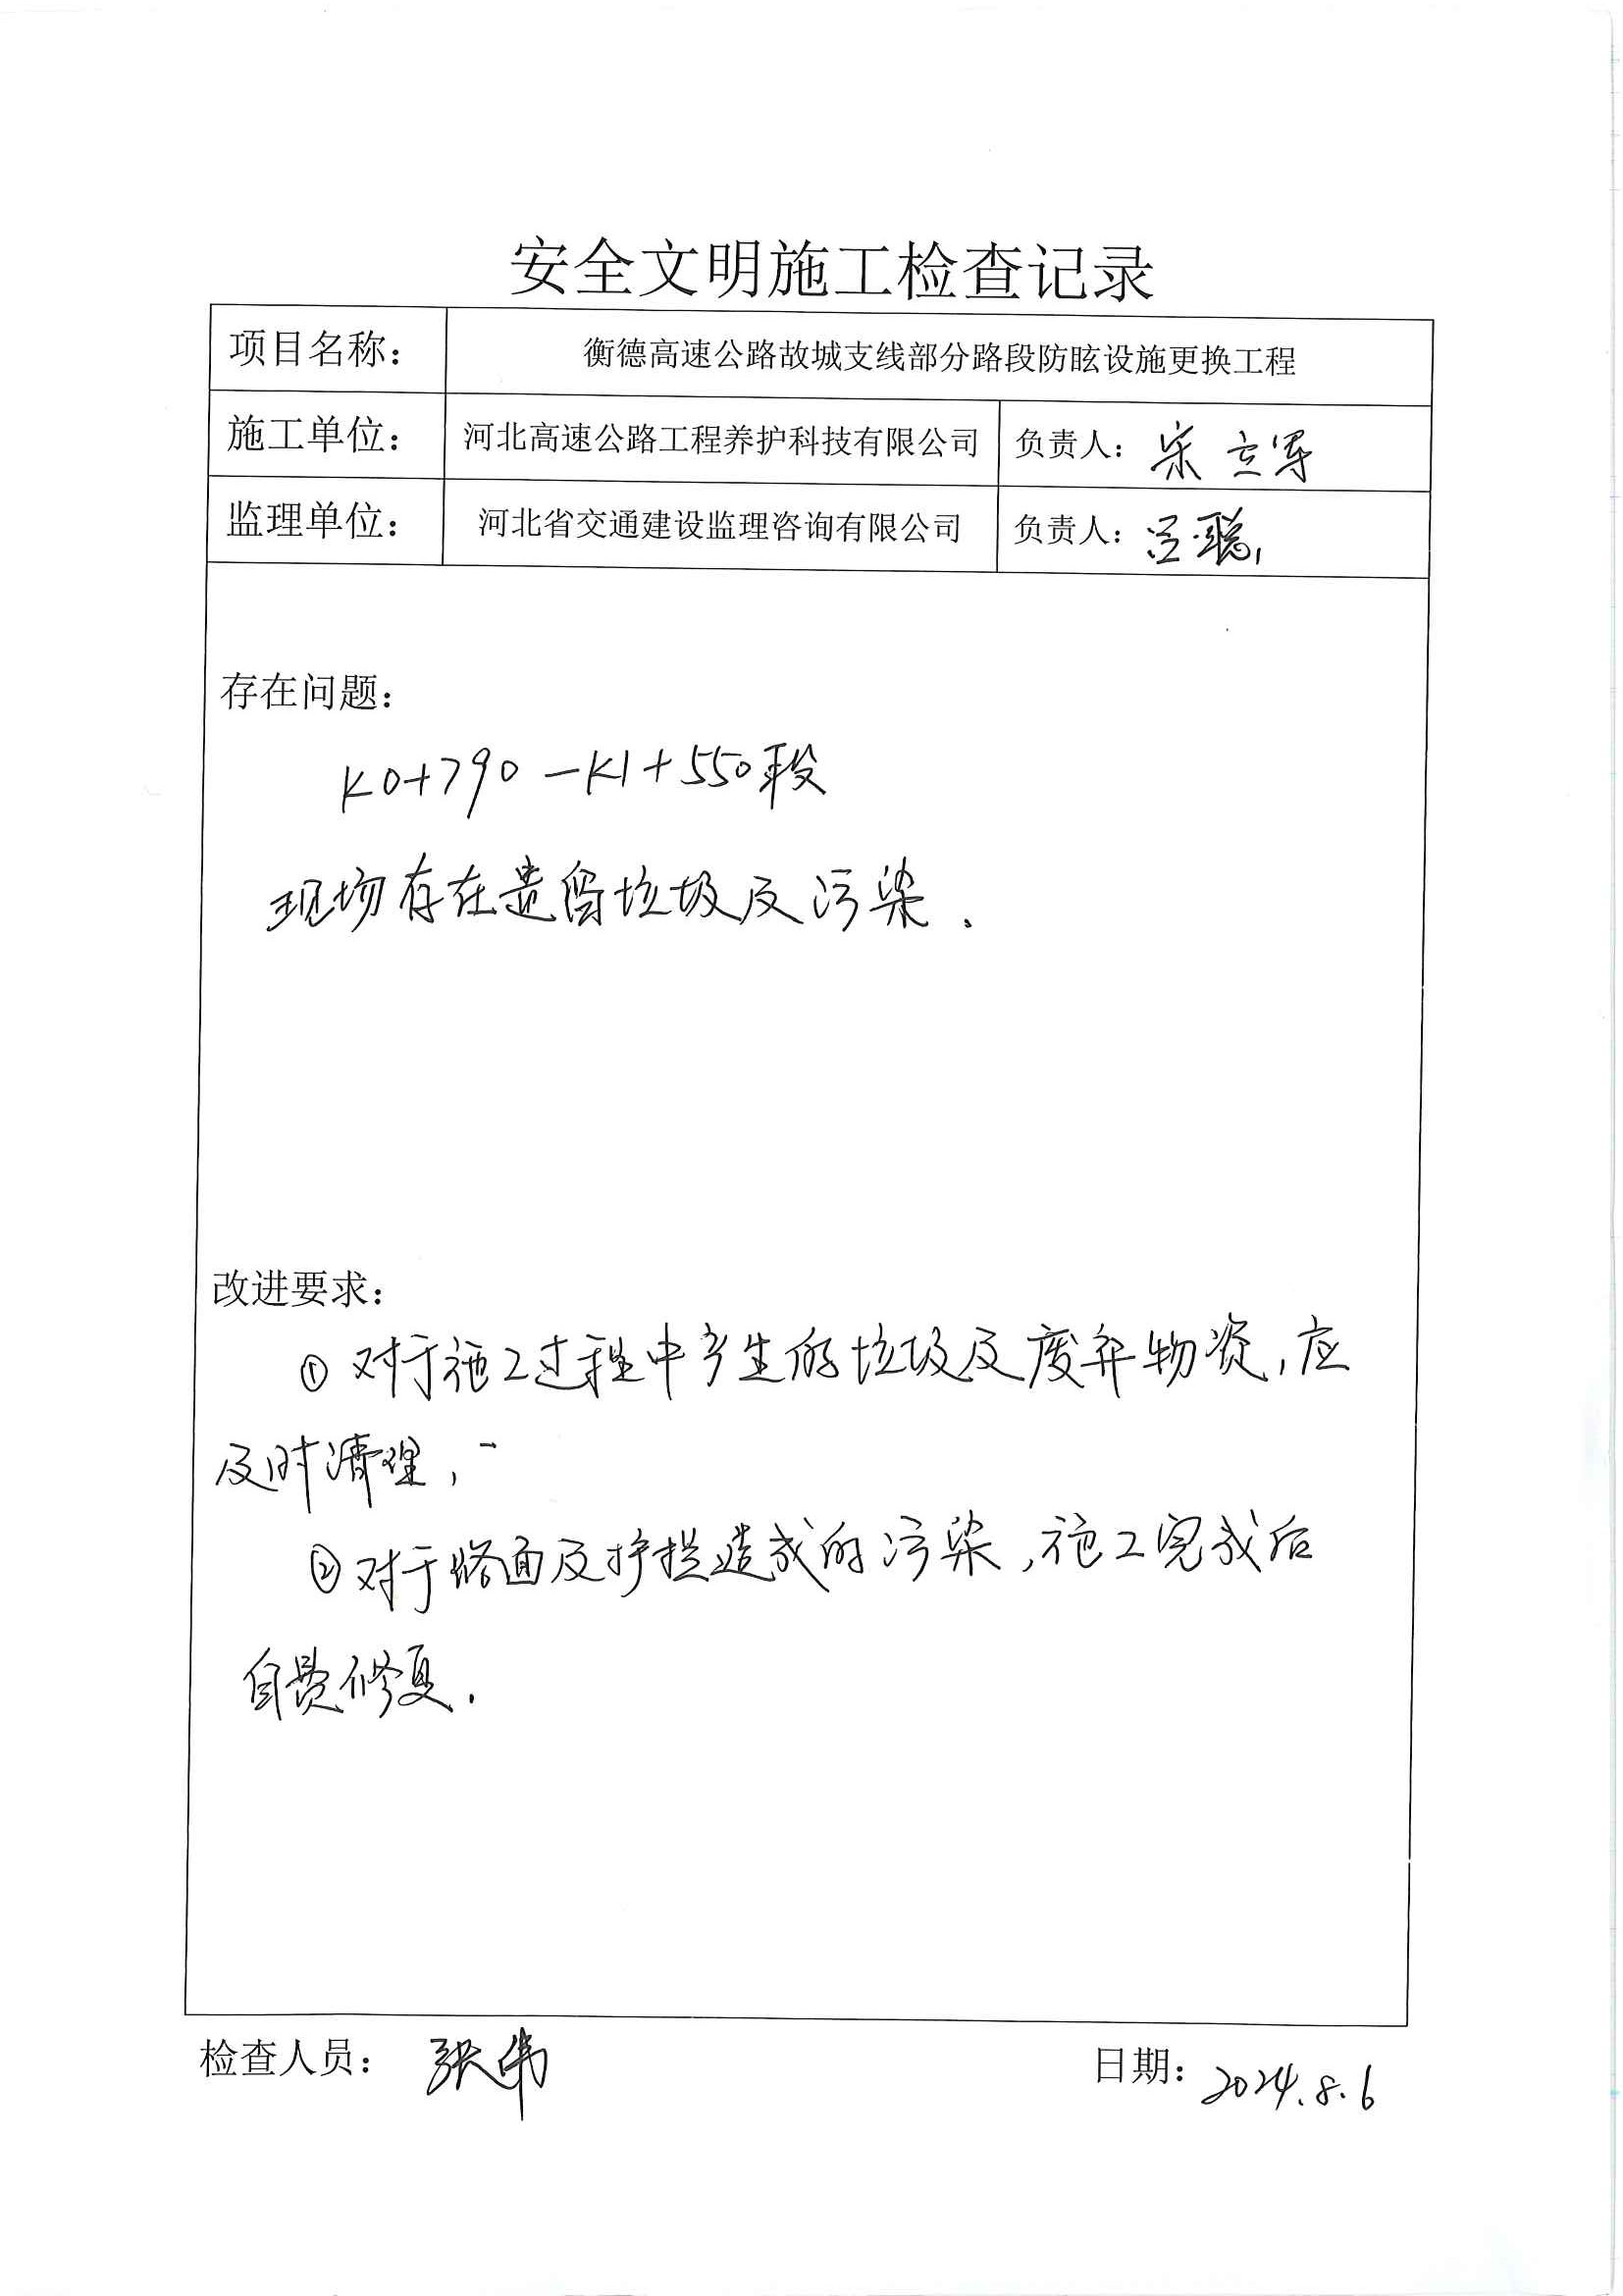 安全文明施工检查记录
项目名称： 衡德高速公路故城支线部分路段防眩设施更换工程
施工单位： 河北高速公路工程养护科技有限公司 负责人： 宋立军
监理单位： 河北省交通建设监理咨询有限公司 负责人： 吕聪
存在问题：
K0+790—K1+550段
现场存在遗留垃圾及污染.
改进要求：
① 对于施工过程中产生的垃圾及废弃物资,应
及时清理,
②对于路面及护栏造成的污染,施工完成后
自费修复.
检查人员： 张伟 日期： 2024.8.6